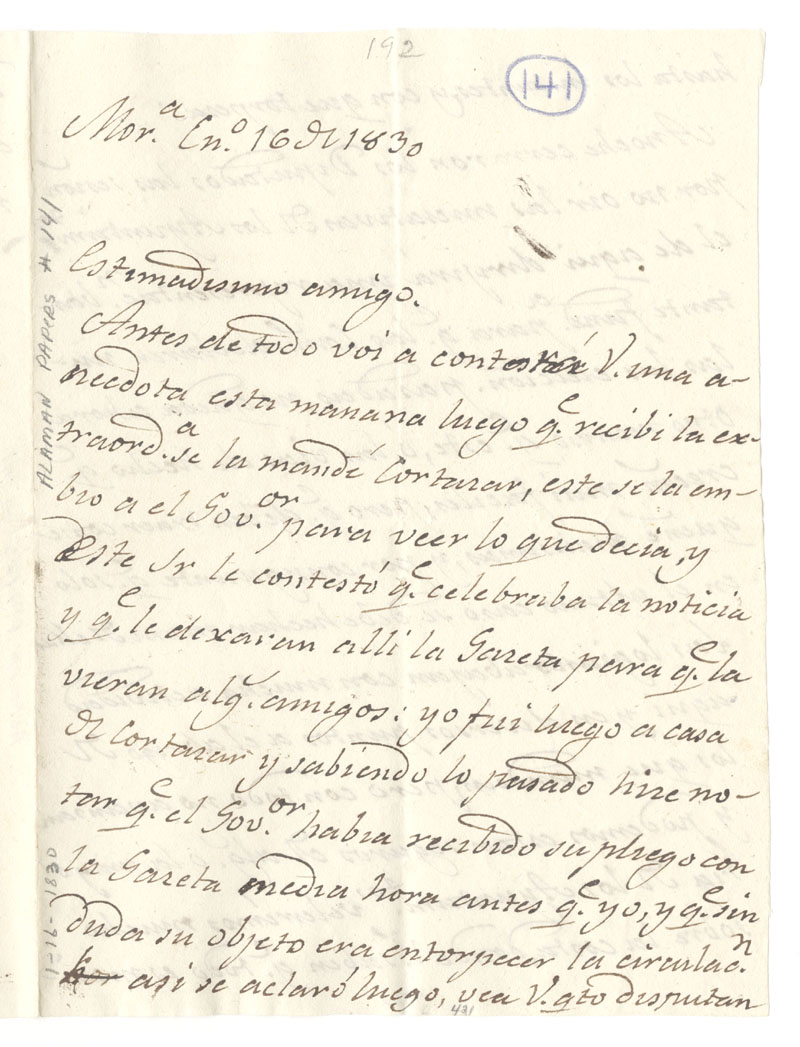 192
141
Mor.ª En.º 16 de 1830
Estimadisimo amigo.
Antes de todo voi a contar á V. una a-
necdota esta manana luego q.e recibi la ex-
traord.ª se la mandé Cortazar, este se la em-
bio a el Gov.or para veer lo que decia, y
Este Sr le contestó q.e celebraba la noticia
y q.e le dexaran alli la Gazeta para q.e la
vieran alg.s amigos: yo fui luego a casa
de Cortazar y sabiendo lo pasado hize no-
tar q.e el Gov.or habia recibido su pliego con
la Gazeta media hora antes q.e yo, y q.e sin
duda su objeto era entorpecer la circulac.n
asi se aclaró luego, vea V. qto disputan
431
ALAMAN PAPERS # 141
1-16-1830